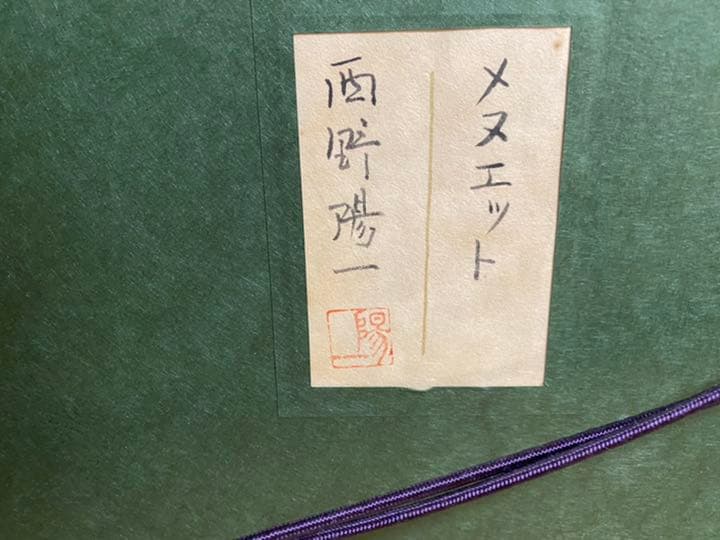 メヌエット
西野陽一
陽一